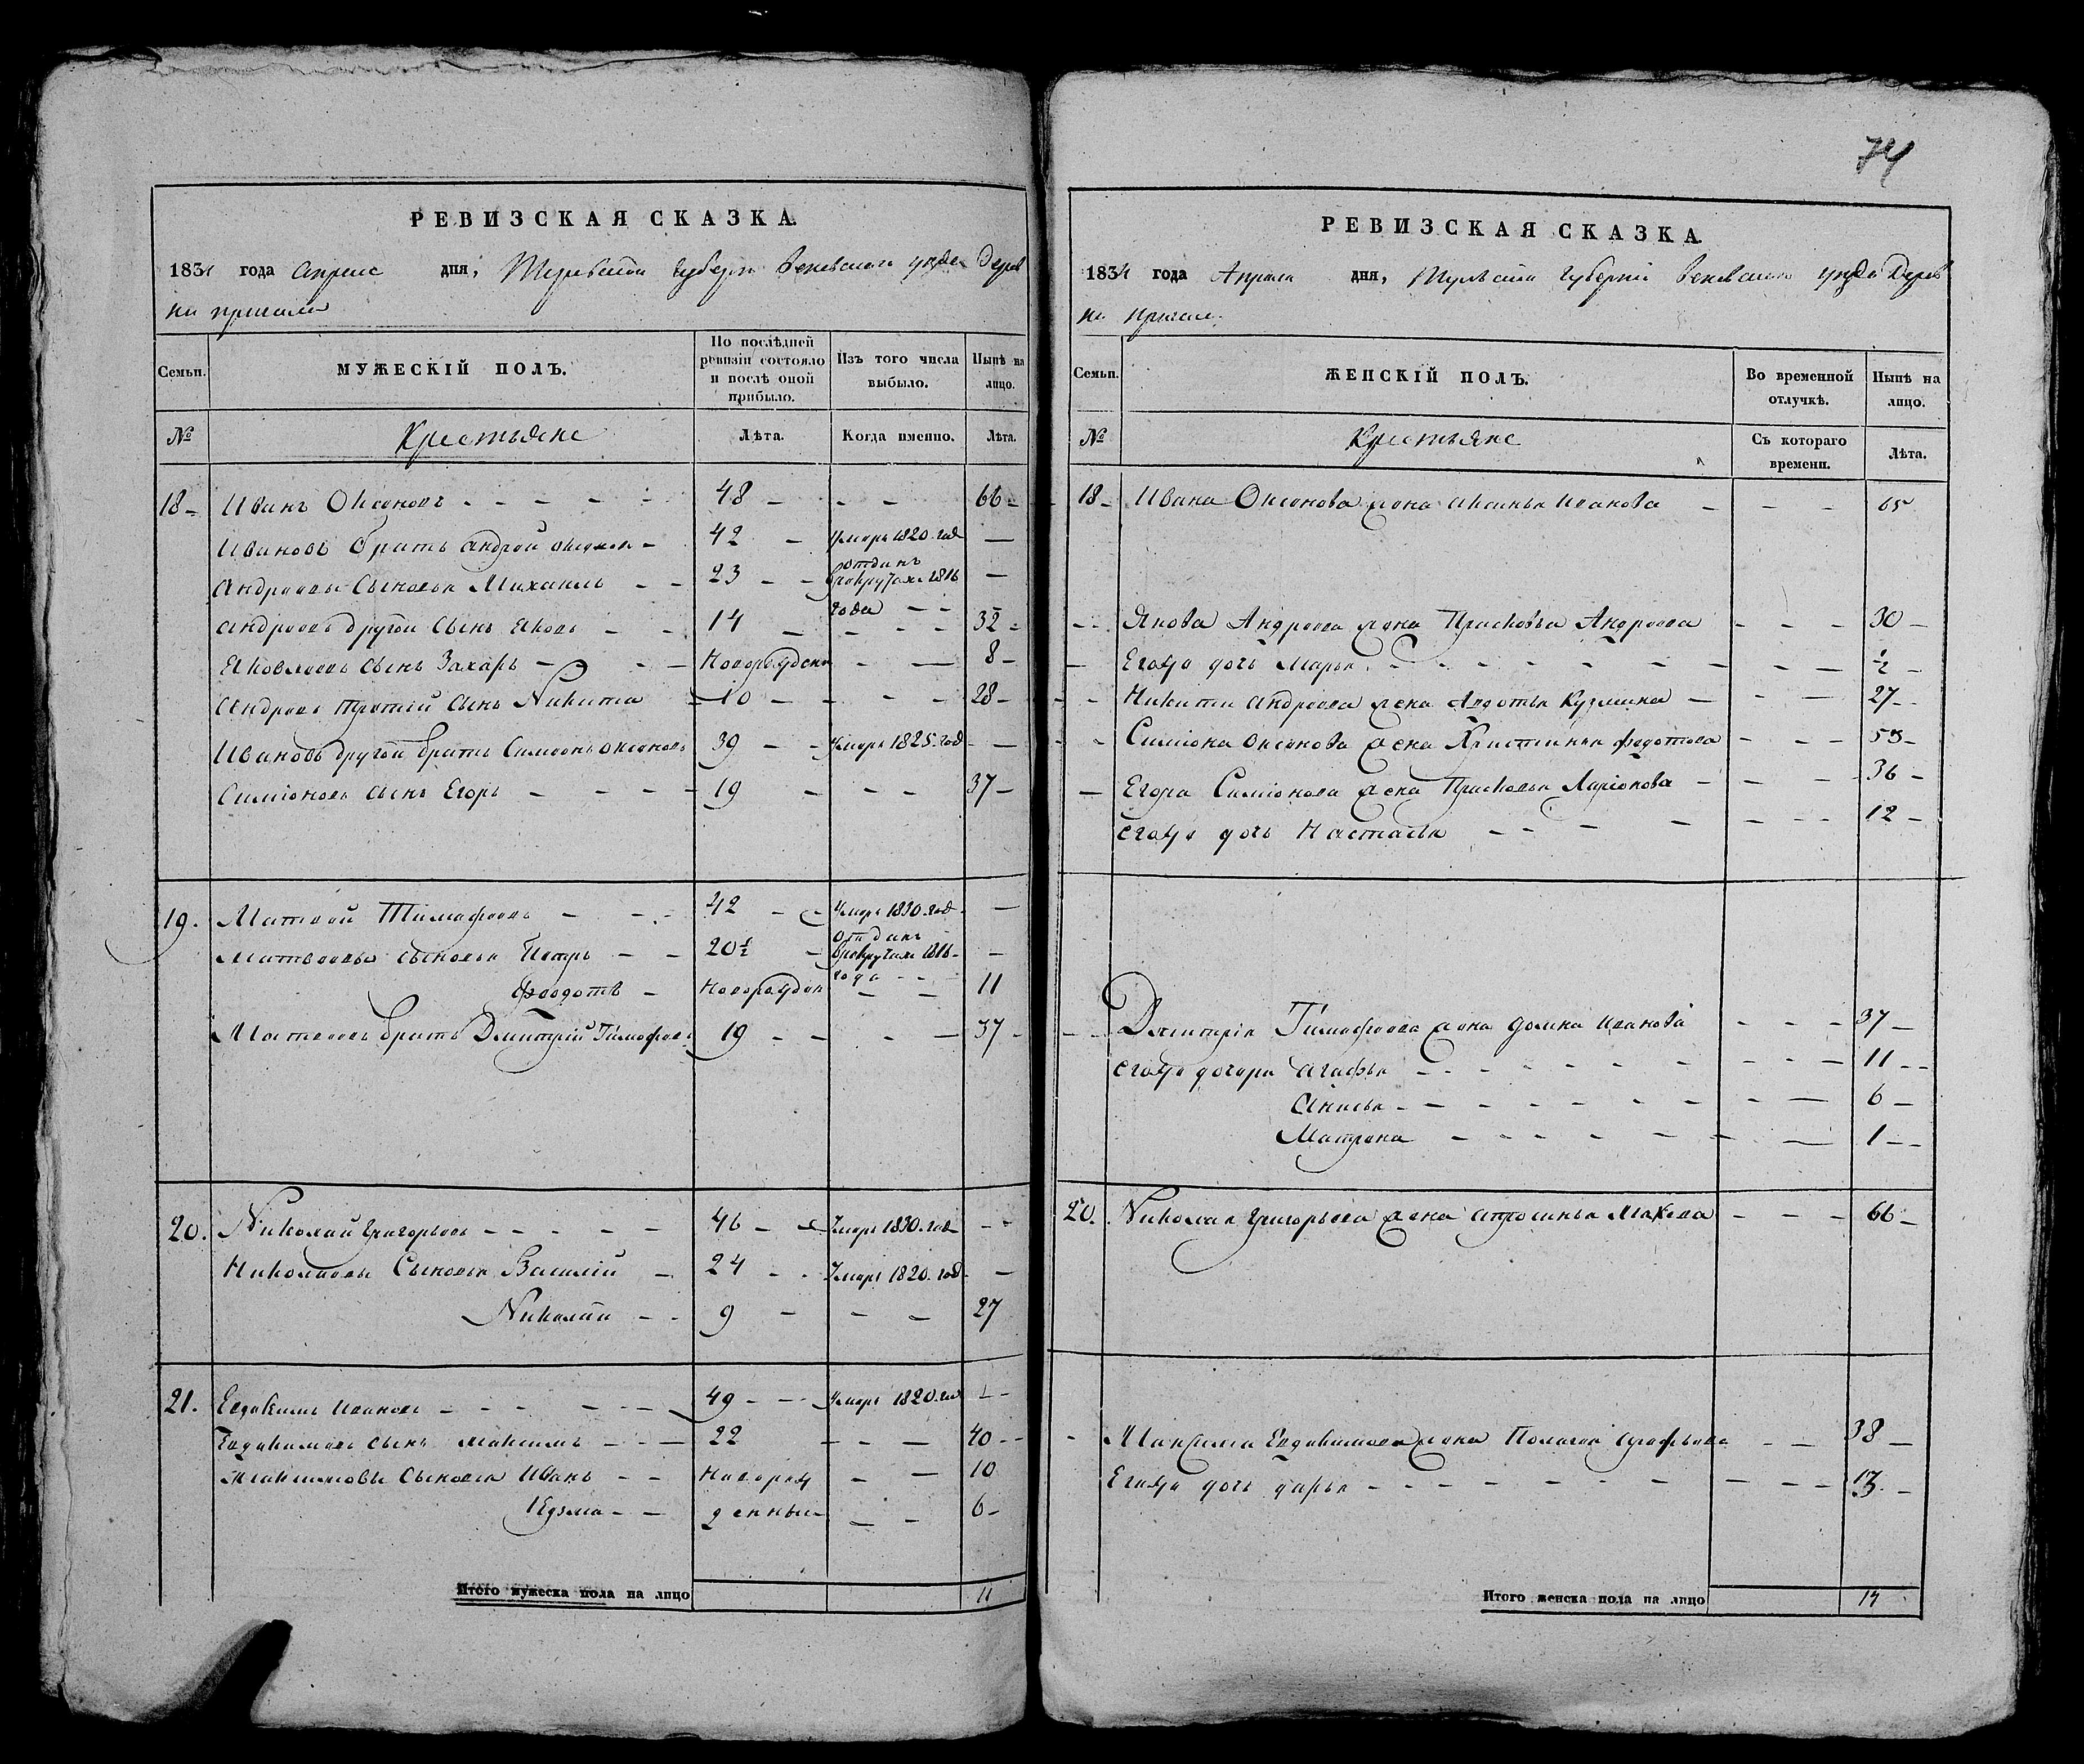 74
РЕВИЗСКАЯ СКАЗКА.
1834 года Апреля дня, Тульской Губерни Веневского уезда Дерев
ни
Семьи.
МУЖЕСКІЙ ПОЛЪ.
По послѣдней ревизіи состояло и послѣ оной прибыло.
Изъ того числа выбыло.
Нынѣ на лицо.
№
Крестьяне
Лѣта.
Когда именно.
Лѣта.
18 Иванъ Оксеновъ 48 66
Ивановъ братъ Андрей Оксенов 42 Умеръ 1820. год
Андреевы Сыновья Михаилъ 23 отданъ в рекруты 1816 года
Андреевъ другой Сынъ Яковъ 14 32
Яковлевъ Сынъ Захаръ Новорожден 8
Андреевъ третій Сынъ Никита 10 28
Ивановъ другой братъ Симеонъ Оксеновъ 39 Умеръ 1825. год
Симіоновъ Сынъ Егоръ 19 37
19. Матвей Тимофеевъ 42 Умеръ 1830. год
Матвеевы Сыновья Петръ 20½ отданъ в рекруты 1816 года
Феодотъ Новорожден 11
Матвеевъ братъ Дмитрий Тимофеев 19 37
20. Николай Григорьевъ 46 Умеръ 1830. год
Николаевы Сыновья Василій 24 Умеръ 1820. год
Николай 9 27
21. Евдакимъ Ивановъ 49 Умеръ 1820. год
Евдакимовъ Сынъ Максимъ 22 40
Максимовы Сыновья Иванъ Новорож 10
Кузма денные 6
Итого мужеска пола на лицо 11
РЕВИЗСКАЯ СКАЗКА.
1834 года Апреля дня, Тульской Губерніи Веневского уезда Дерев
ни
Семьи.
ЖЕНСКІЙ ПОЛЪ.
Во временной отлучкѣ.
Нынѣ на лицо.
№
Крестьяне
Съ котораго времени.
Лѣта.
18 Ивана Оксенова жена Аксинья Иванова 65
Якова Андреева жена Прасковья Андреева 30
Егожа дочь Марья ½
Никиты Андреева жена Авдотья Кузмина 27
Симіона Оксенова жена Христинья Федотова 53
Егора Симіонова жена Прасковья Ларіонова 36
Егожа дочь Настасья 12
Дмитрія Тимофеева жена Домна Иванова 37
Егожа дочери Агафья 11
Анисья 6
Матрена 1
20. Николая Григорьева жена Апросинья Макева 66
Максима Евдакимова жена Полагея 38
Егожа дочь Дарья 13
Итого женска пола на лицо 14